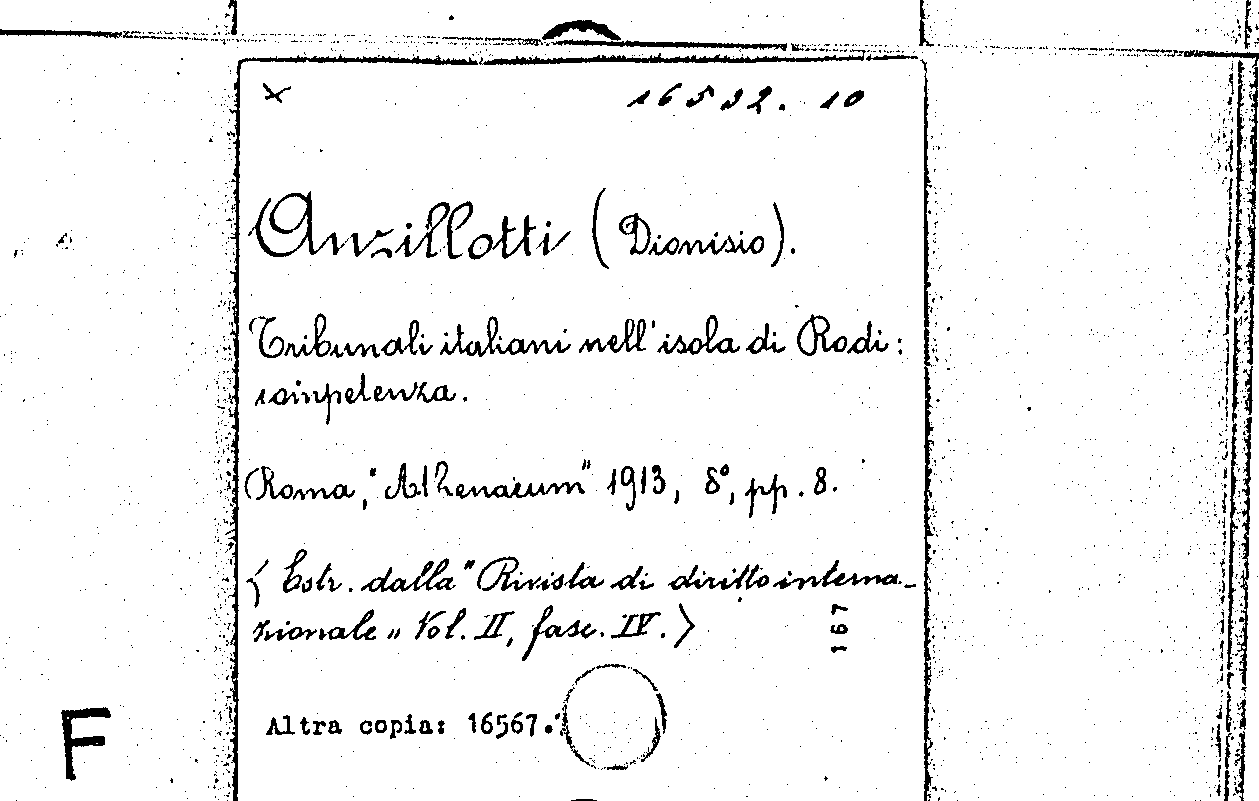 x 16532. 10
Anzillotti (Dionisio).
Tribunali italiani nell'isola di Rodi:
competenza.
Roma, "Athenaeum" 1913, 8°, pp. 8.
〈 Estr. dalla "Rivista di diritto interna-
zionale" Vol. II, fasc. IV. 〉
167
Altra copia: 16567.
F